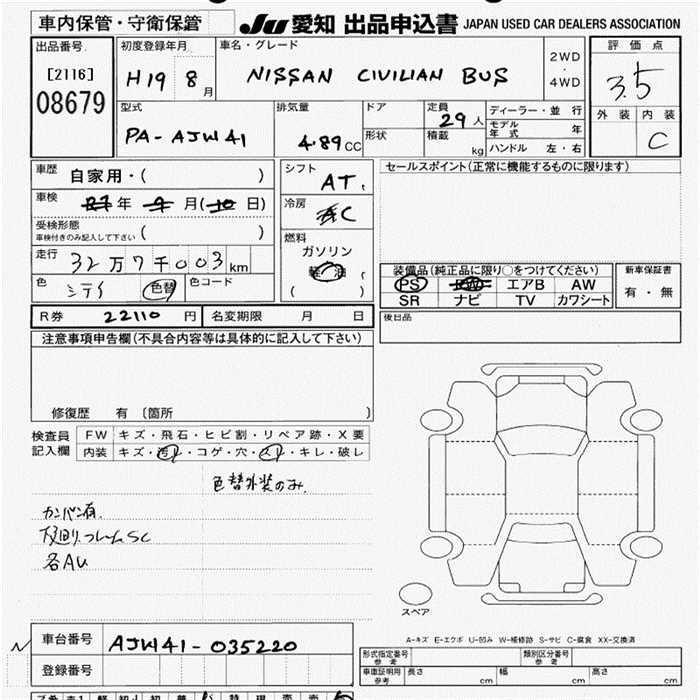 車内保管・守衛保管
JU 愛知 出品申込書 JAPAN USED CAR DEALERS ASSOCIATION
出品番号
[2116]
08679
初度登録年月
H19 8月
車名・グレード
NISSAN CIVILIAN BUS
2WD
・
4WD
評価点
3.5
外装 内装
C
型式
PA-AJW41
排気量
4.89CC
ドア
形状
定員 29人
積載 kg
ディーラー・並行
モデル年式 年
ハンドル 左・右
車歴 自家用・( )
車検 年 月( 日)
受検形態
車検付きのみ記入して下さい ( )
走行 32万7千003km
色 色替 色コード
シフト
AT
冷房
AC
燃料
ガソリン
軽油
( )
セールスポイント(正常に機能するものに限ります)
装備品(純正品に限り○をつけてください)
PS エアB AW
SR ナビ TV カワシート
新車保証書
有・無
R券 22110円 名変期限 月 日
後日品
注意事項申告欄(不具合内容等は具体的に記入して下さい)
修復歴 有 〔箇所 〕
検査員
記入欄
FW キズ・飛石・ヒビ割・リペア跡・X要
内装 キズ・汚レ・コゲ・穴・スレ・キレ・破レ
色替外装のみ
カンバン有
下廻り.フレームSC
各AU
スペア
A-キズ E-エクボ U-凹み W-補修跡 S-サビ C-腐食 XX-交換済
車台番号 AJW41-035220
登録番号
型式指定番号
参考
類別区分番号
参考
車庫証明用
参考
長さ cm 幅 cm 高さ cm